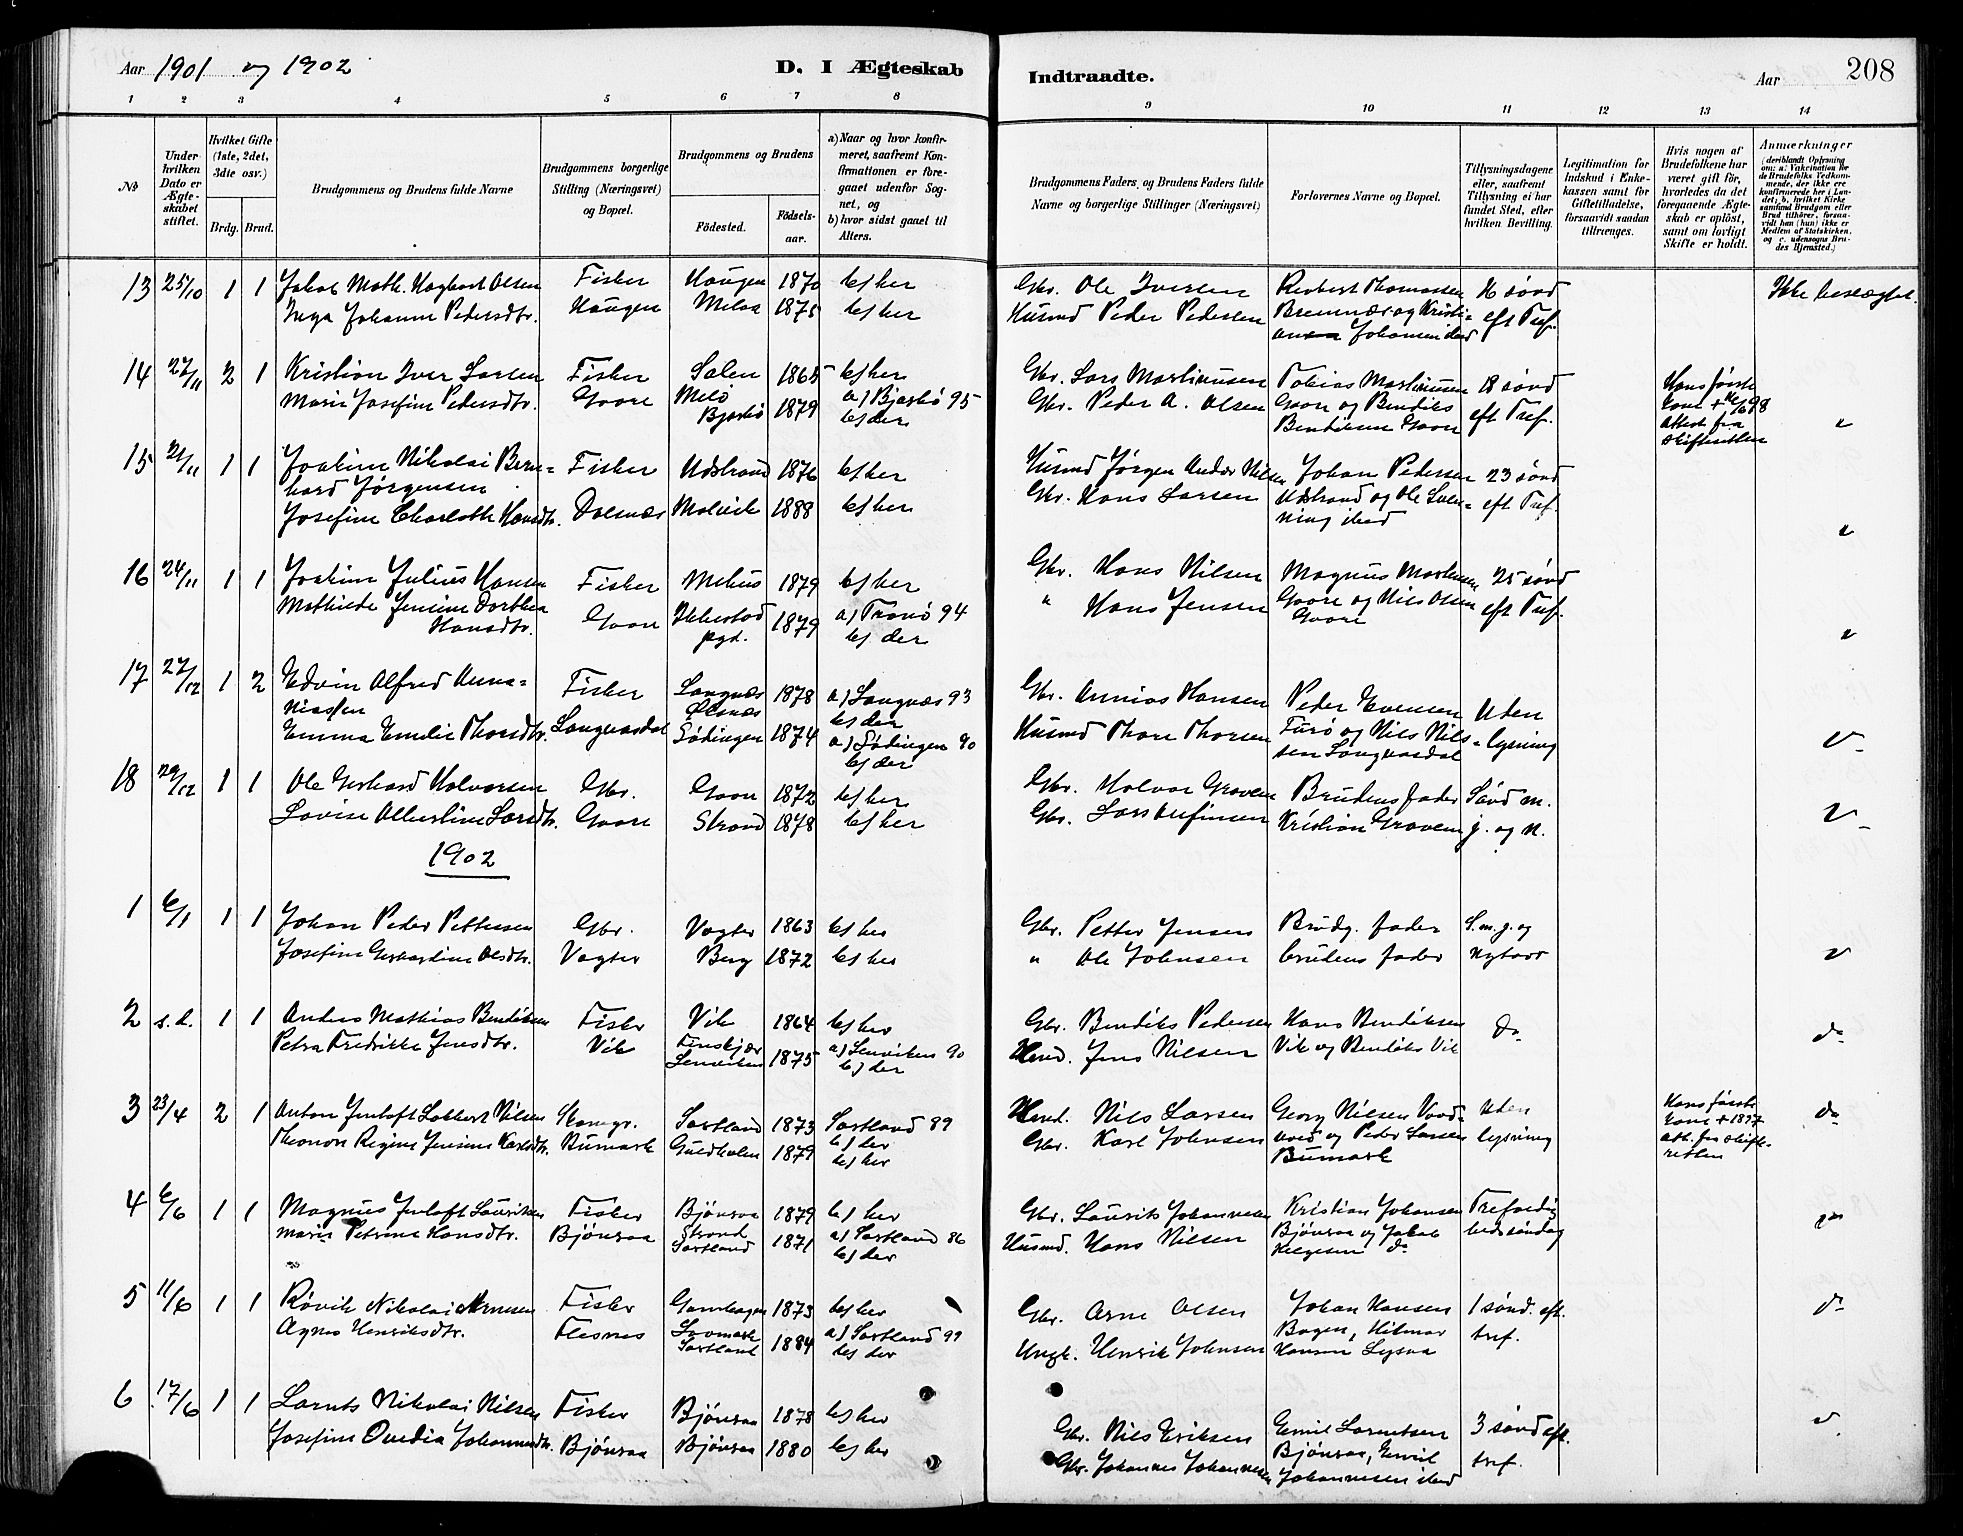 Aar 1901 og 1902
D. I Ægteskab Indtraadte.
Aar
208
1 2 3 4 5 6 7 8 9 10 11 12 13 14
No
Under hvilken Dato er Ægteskabet stiftet.
Hvilket Gifte (1ste, 2det, 3die osv.)
Brdg. Brud.
Brudgommens og Brudens fulde Navne
Brudgommens borgerlige Stilling (Næringsvei) og Bopæl.
Brudgommens og Brudens
Fødested.
Fødselsaar.
a) Naar og hvor konfirmeret, saafremt Konfirmationen er foregaaet udenfor Sognet, og
b) hvor sidst gaaet til Alters.
Brudgommens Faders, og Brudens Faders fulde Navne og borgerlige Stillinger (Næringsvei)
Forlovernes Navne og Bopæl.
Tillysningsdagene eller, saafremt Tillysning ei har fundet Sted, efter hvilken Bevilling.
Legitimation for Indskud i Enkekassen samt for Giftetilladelse, forsaavidt saadan tiltrænges.
Hvis nogen af Brudefolkene har været gift før, hvorledes da det foregaaende Ægteskab er opløst, samt om lovligt Skifte er holdt.
Anmerkninger
(deriblandt Oplysning om: a. Vakcination for de Brudefolks Vedkommende, der ikke ere konfirmerede her i Landet; b. hvilket Kirkesamfund Brudgom eller Brud tilhører, forsaavidt han (hun) ikke er Medlem af Statskirken, og c. udensogns Brudes Hjemsted.)
13 25/10 1 1 Jakob Math. Hagbart Olsen Fisker Haugen 1870 b) her Gbr. Ole Iversen Thomassen 16 sønd Ikke beslægtet.
Inga Johanne Pedersdtr. Haugen Milsa 1875 b) her Husmd Peder Pedersen Bremnæs og Kristi= eft Tref.
14 27/11 2 1 Kristian Iver Larsen Fisker Salen 1865 b) her Gbr. Lars Martinusen Tobias Martinusen 18 sønd Hans første
Marie Josefine Pedersdtr. Gaare Milø 1879 a) Bjarkø 95 Gbr. Peder A. Olsen Gaare og Bendiks eft Tref. Kone +
Bjarkø b) der Bendiksen Gaare Attest fra
skifteretten
15 21/11 1 1 Joakim Nikolai Bern= Fisker Udstrand 1876 b) her Husmd Jørgen Andor Nilsen Johan Pedersen 23 sønd
hard Jørgensen
Josefine Charlotte Hansdtr. Dalsnæs Malvik 1888 b) her Gbr. Hans Larsen Udstrand og Ole eft Tref.
ning ibid
16 24/11 1 1 Joakim Julius Hansen Fisker 1879 b) her Gbr. Hans Nilsen Magnus Martinsen 25 sønd
Mathilde Jensine Dorthea Gaare Ibbestad 1879 a) Tranø 94 " Hans Jensen Gaare og Nils Olsen eft Tref.
Hansdtr. pgd. b) der Gaare
17 27/12 1 2 Edvin Alfred Anna= Fisker Langnæs 1878 a) Langnæs 93 Gbr. Annias Hansen Peder Evensen Uden
niassen b) der
Emma Emelie Thorsdtr. Langvasdal Lødingen 1874 a) Lødingen 90 Husmd Thore Thorsen Furø og Nils Nils= lysning
b) der sen Langvasdal
18 29/12 1 1 Ole Gerhard Halvorsen Gbr. Gaare 1872 b) her Gbr. Halvor Graven Brudens fader Sønd m.
Lovise Albertine Larsdtr. Gaare Strand 1878 b) her Gbr. Lars Kristian Graven j. og n.
1902
1 6/1 1 1 Johan Peder Pettersen Gbr. Vagter 1863 b) her Gbr. Petter Jensen Brudg. fader S. m. j. og
Josefine Gerhardine Olsdtr. Vagter Berg 1872 b) her " Ole Johnsen brudens fader nytaar
2 s. d. 1 1 Anders Mathias Bendiksen Fisker Vik 1864 b) her Gbr. Bendiks Pedersen Hans Bendiksen do do
Petra Fredrikke Jensdtr. Vik Finskjær 1875 a) Lenviken 90 Jens Nilsen Vik og Bendiks Vik
Lenviken b) der
3 23/4 2 1 Anton Jentoft Lokkert Nilsen Sortland 1873 Sortland 89 Nils Larsen Georg Nilsen Uden Hans første do
b) her Kone + 1897
Regine Jensine Karlsdtr. Bumark Guldholm 1879 b) her Gbr. Karl Johnsen og Peder Larsen lysning att. fra skifte-
Bumark retten
4 6/6 1 1 Magnus Jentoft Lauritsen Fisker Bjønraa 1879 b) her Gbr. Laurits Johannesen Kristian Johansen Trefoldig
Marie Petrine Hansdtr. Bjønraa Strand 1871 a) Sortland 86 Husmd. Hans Nilsen Bjønraa og Jakob hedssøndag
Sortland b) der Helgesen do
5 11/6 1 1 Røvik Nikolai Arnesen Fisker 1873 b) her Gbr. Arne Olsen Johan Hansen 1 sønd. eft. do
Agnes Henriksdtr. Flesnes 1884 a) Sortland 99 Ungk. Henrik Johnsen Bogen, Hilmar tref.
Sortland b) der Hansen
6 17/6 1 1 Nikolai Nilsen Fisker Bjønraa 1878 b) her Gbr. Nils Eriksen Emil Lorentsen 3 sønd eft.
Josefine Ovedia Johannesdtr. Bjønraa Bjønraa 1880 b) her Gbr. Johannes Johannesen Bjønraa, Emil tref.
Johannesen ibid